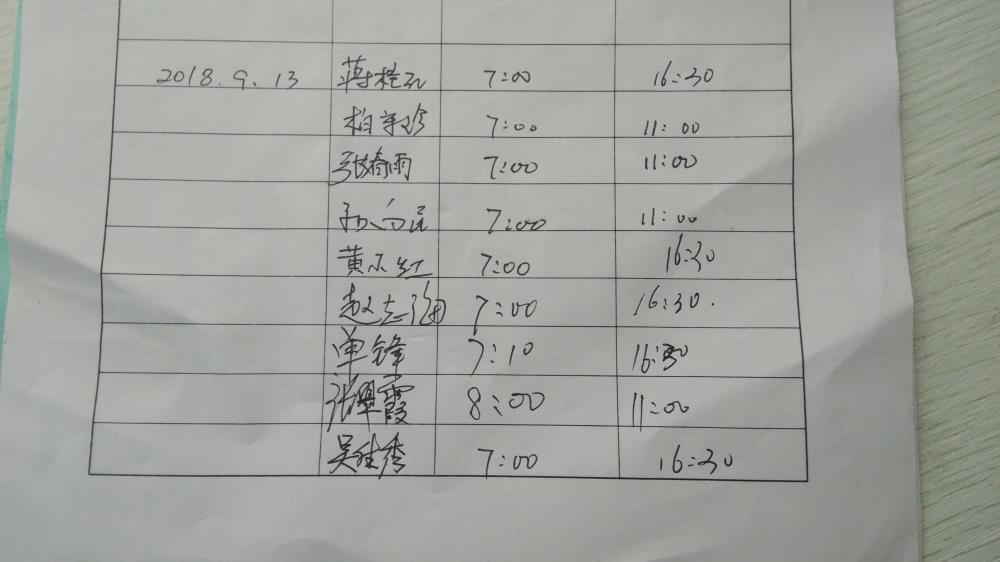 2018.9.13 蒋 7:00 16:30
柏 珍 7:00 11:00
张春雨 7:00 11:00
孙向 7:00 11:00
黄小红 7:00 16:30
赵志 7:00 16:30.
单锋 7:10 16:30
张翠霞 8:00 11:00
吴 秀 7:00 16:30